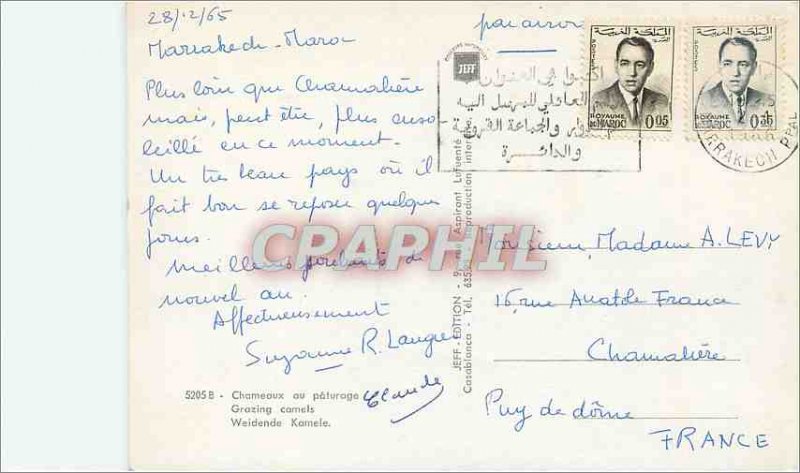 28/12/65
Marrakech - Maroc
Plus loin que Chamalière
mais, peut être, plus enso-
leillé en ce moment.
Un très beau pays où il
fait bon se reposer quelques
jours.
Meilleurs souhaits de
nouvel an.
Affectueusement
Suzanne R.
Claude
5205 B - Chameaux au pâturage
Grazing camels
Weidende Kamele.
JEFF
JEFF - EDITION - 9, rue Aspirant Lafuente
Casablanca - Tél. Reproduction
par avion
المملكة المغربية
POSTES
ROYAUME
DU MAROC 0.05
المملكة المغربية
POSTES
ROYAUME
DU MAROC
اكتبوا في العنوان
إليه
والجماعة القروية
والدائرة
MARRAKECH PPAL
Monsieur, Madame A. LEVY
16, rue Anatole France
Chamalière
Puy de dôme
FRANCE
CPAPHIL